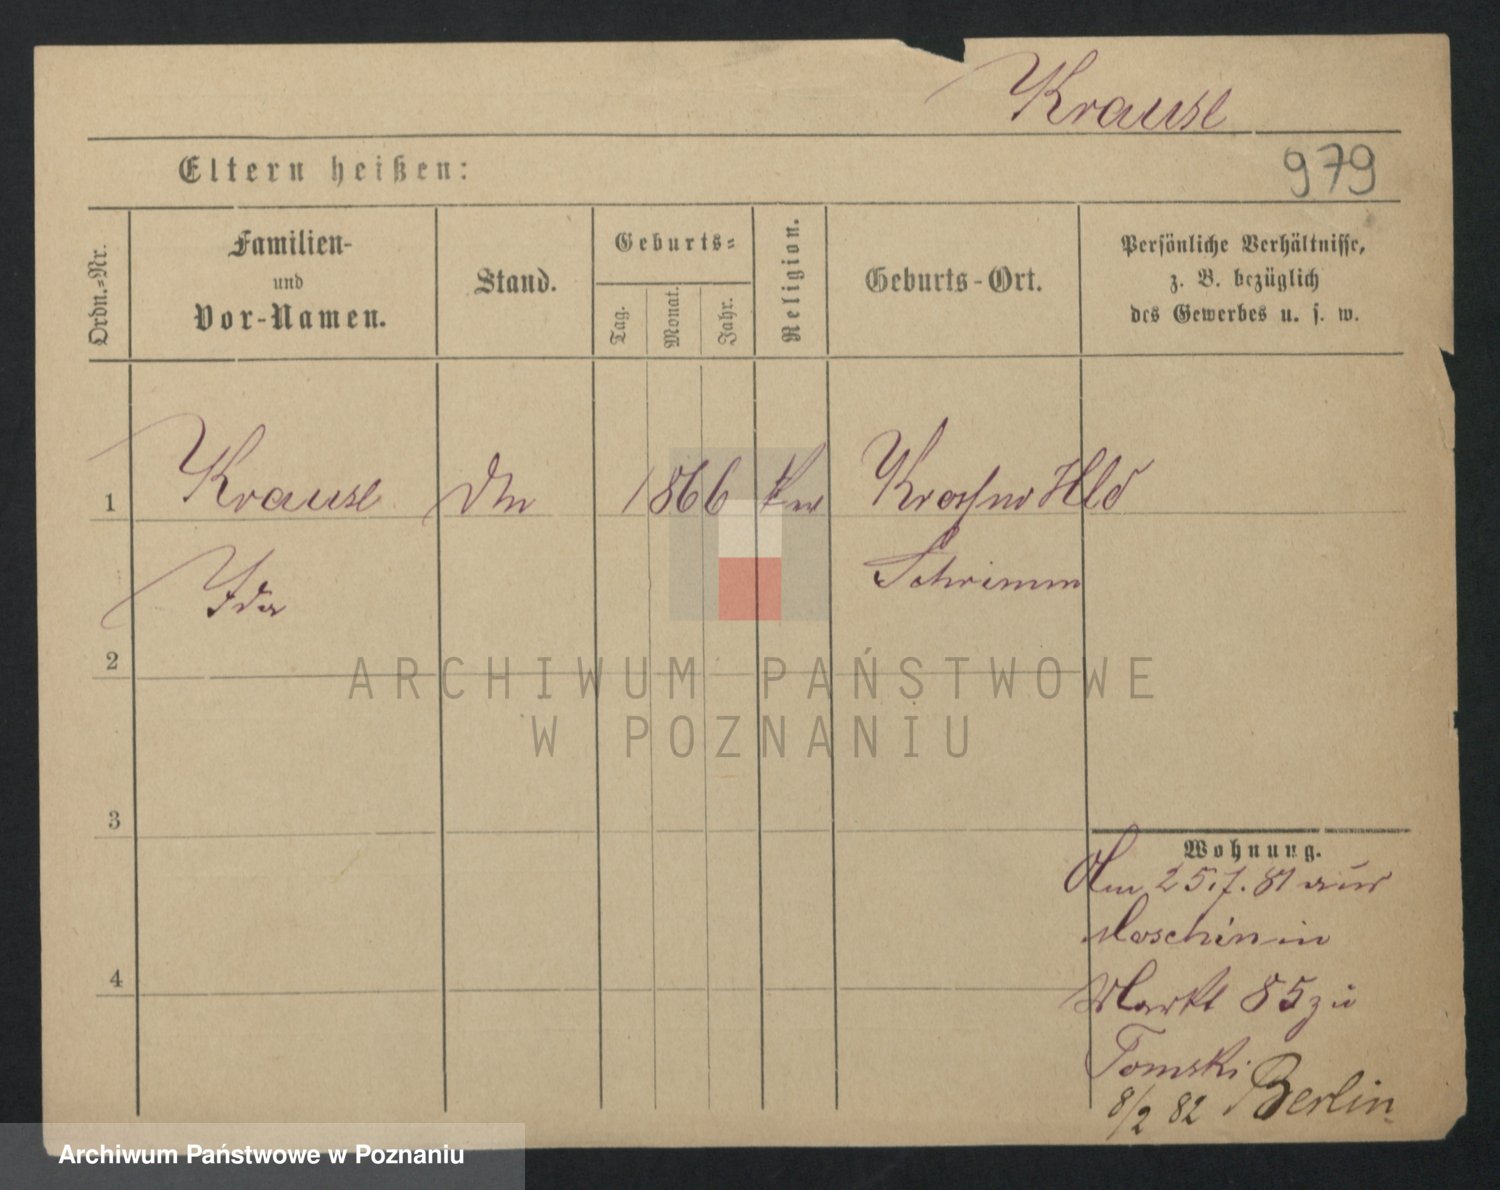 Krause
979
Eltern heißen:
Ordn.-Nr.
Familien-
und
Vor-Namen.
Stand.
Geburts-
Tag.
Monat.
Jahr.
Religion.
Geburts-Ort.
Persönliche Verhältnisse,
z. B. bezüglich
des Gewerbes u. s. w.
1
Krause
1866
Hld
Ida
Schrimm
2
ARCHIWUM PAŃSTWOWE
W POZNANIU
3
Wohnung.
Am 25.7.81 aus
Moschin in
4
Markt 85 zu
Tomski
8/2 82 Berlin
Archiwum Państwowe w Poznaniu